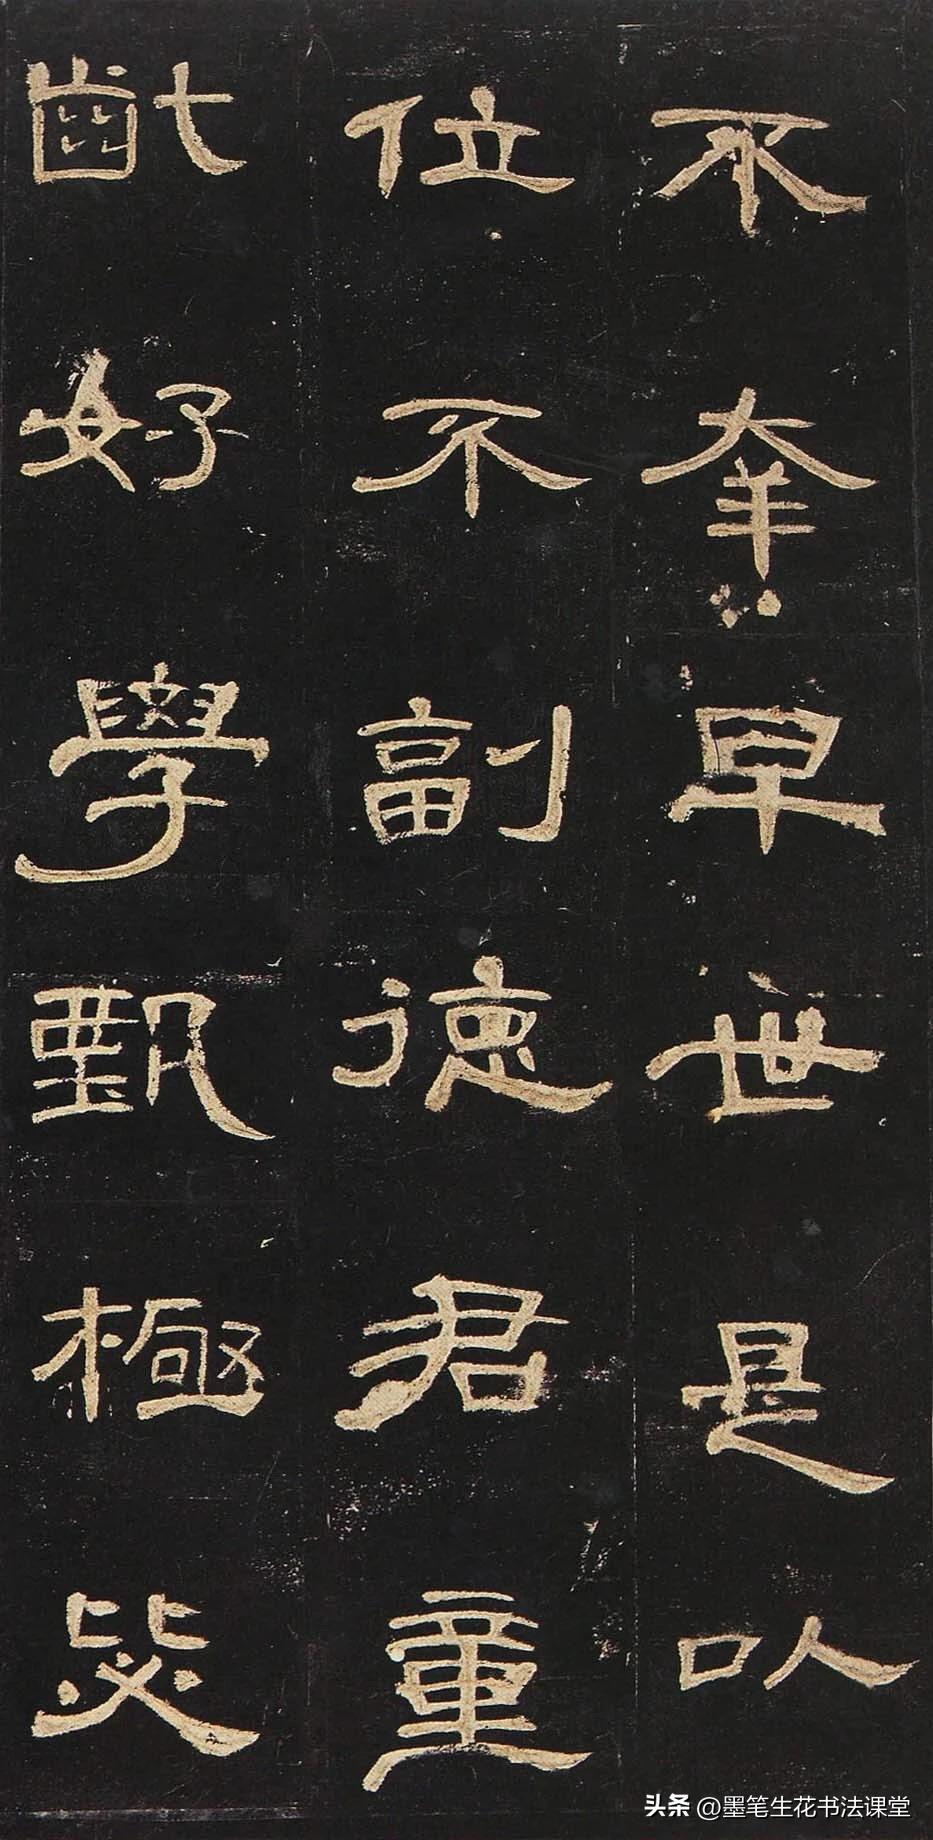 不幸早世是以
位不副德君童
齔好學甄極毖
头条 @墨笔生花书法课堂